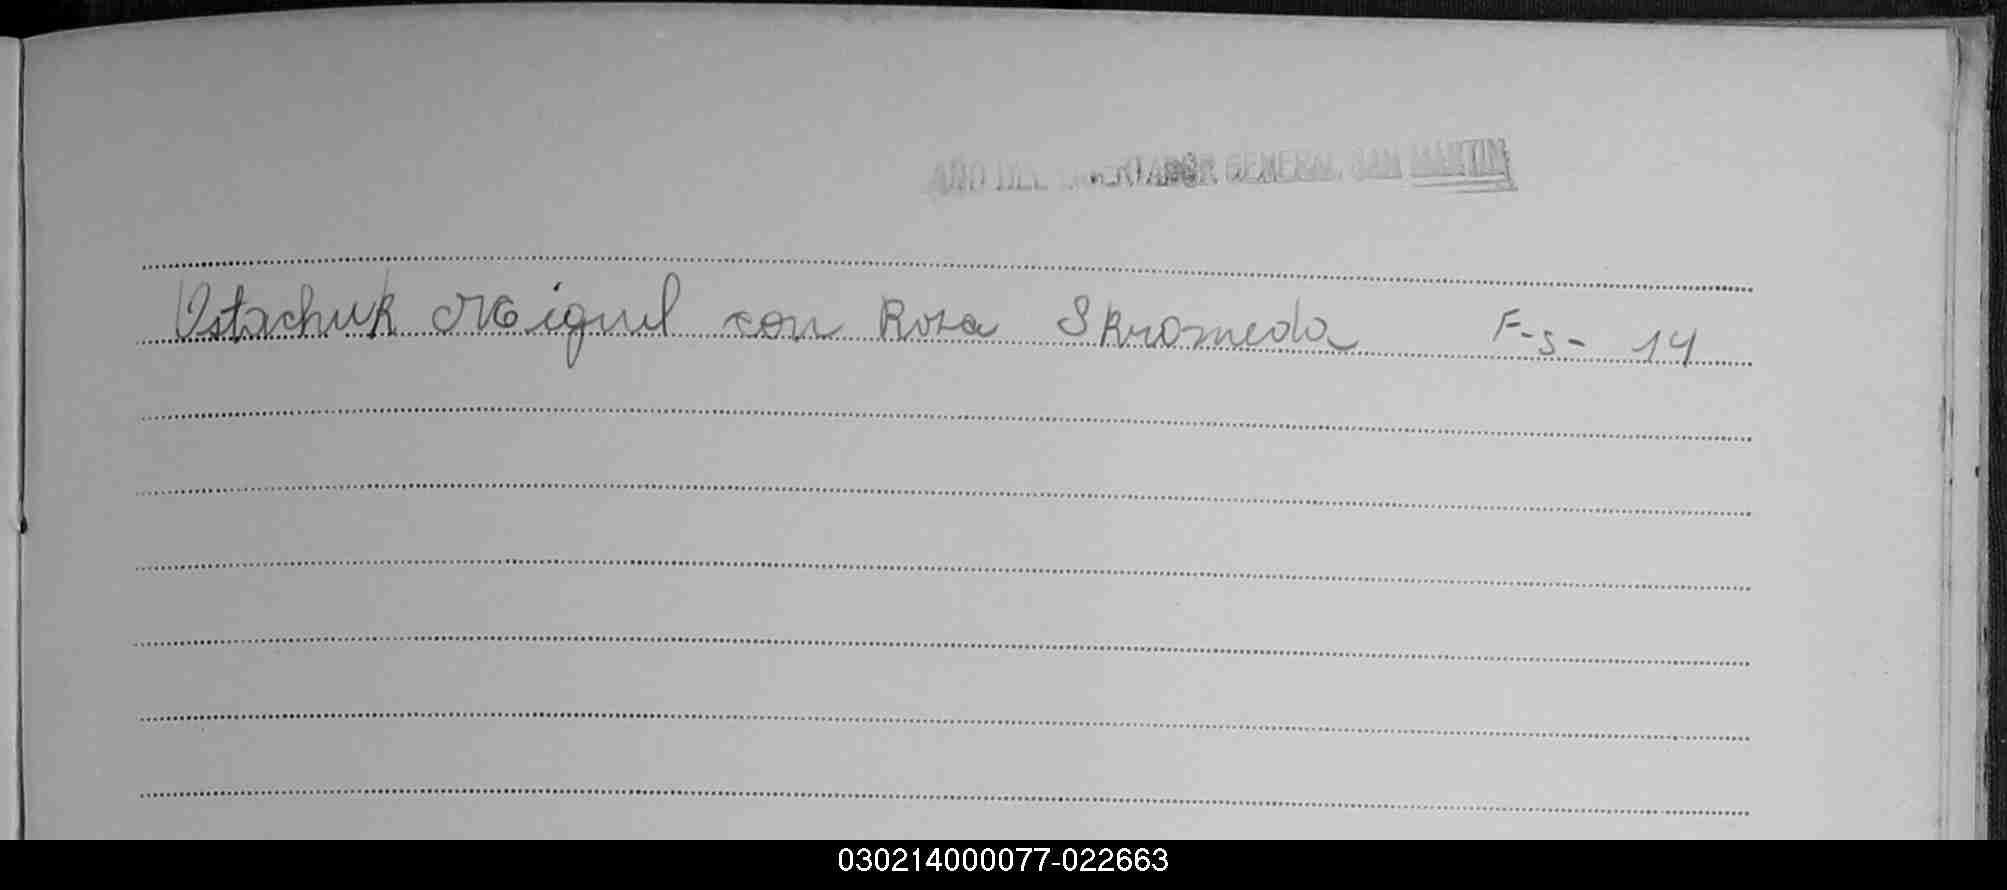 AÑO DEL LIBERTADOR GENERAL SAN MARTIN
Ostachuk Miguel con Rosa Skromeda F-s- 14
030214000077-022663